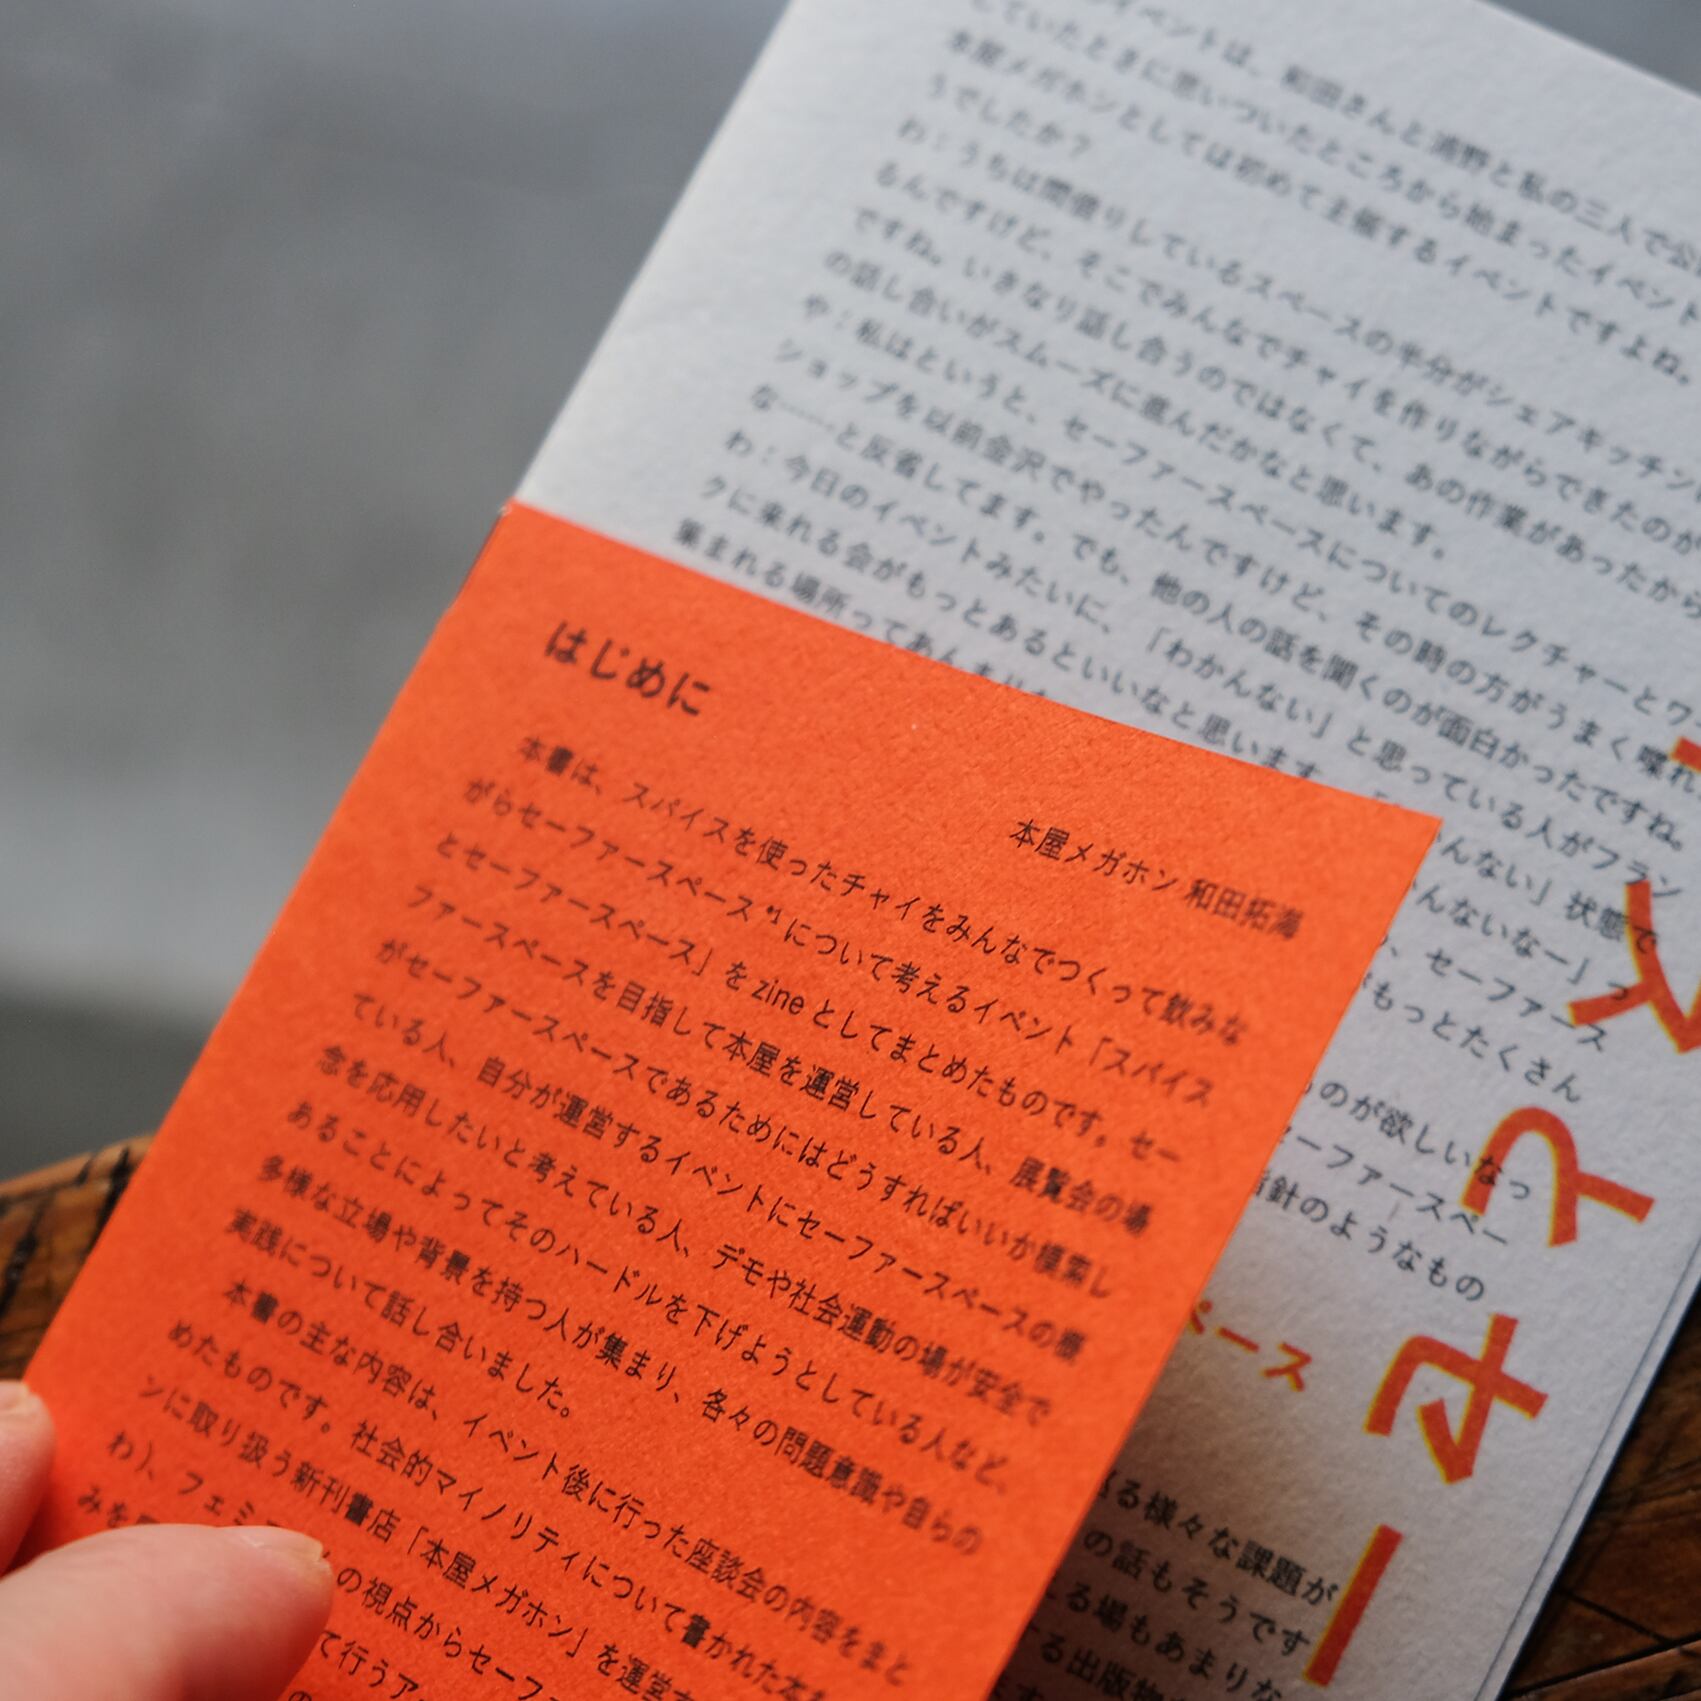 イベントは、和田さんと浦野と私の三人で公
していたときに思いついたところから始まったイベント
本屋メガホンとしては初めて主催するイベントですよね。
うでしたか？
わ：うちは間借りしているスペースの半分がシェアキッチン
るんですけど、そこでみんなでチャイを作りながらできたのが
ですね。いきなり話し合うのではなくて、あの作業があったから
の話し合いがスムーズに進んだかなと思います。
や：私はというと、セーファースペースについてのレクチャーとワ
ショップを以前金沢でやったんですけど、その時の方がうまく喋れ
な……と反省してます。でも、他の人の話を聞くのが面白かったですね。
わ：今日のイベントみたいに、「わかんない」と思っている人がフラン
クに来れる会がもっとあるといいなと思います。
んない」状態で
集まれる場所ってあんまりな
んないなー」っ
、セーファース
がもっとたくさん
ものが欲しいなっ
ァーファースペー
指針のようなもの
ペース
る様々な課題が
の話もそうです
る場もあまりな
する出版物
スとセー
はじめに
本屋メガホン 和田拓海
本書は、スパイスを使ったチャイをみんなでつくって飲みな
がらセーファースペース*1について考えるイベント「スパイス
とセーファースペース」をzineとしてまとめたものです。セー
ファースペースを目指して本屋を運営している人、展覧会の場
がセーファースペースであるためにはどうすればいいか模索し
ている人、自分が運営するイベントにセーファースペースの概
念を応用したいと考えている人、デモや社会運動の場が安全で
あることによってそのハードルを下げようとしている人など、
多様な立場や背景を持つ人が集まり、各々の問題意識や自らの
実践について話し合いました。
本書の主な内容は、イベント後に行った座談会の内容をまと
めたものです。社会的マイノリティについて書かれた本を
ンに取り扱う新刊書店「本屋メガホン」を運営
わ）、フェミ
の視点からセーフ
みを
て行うア